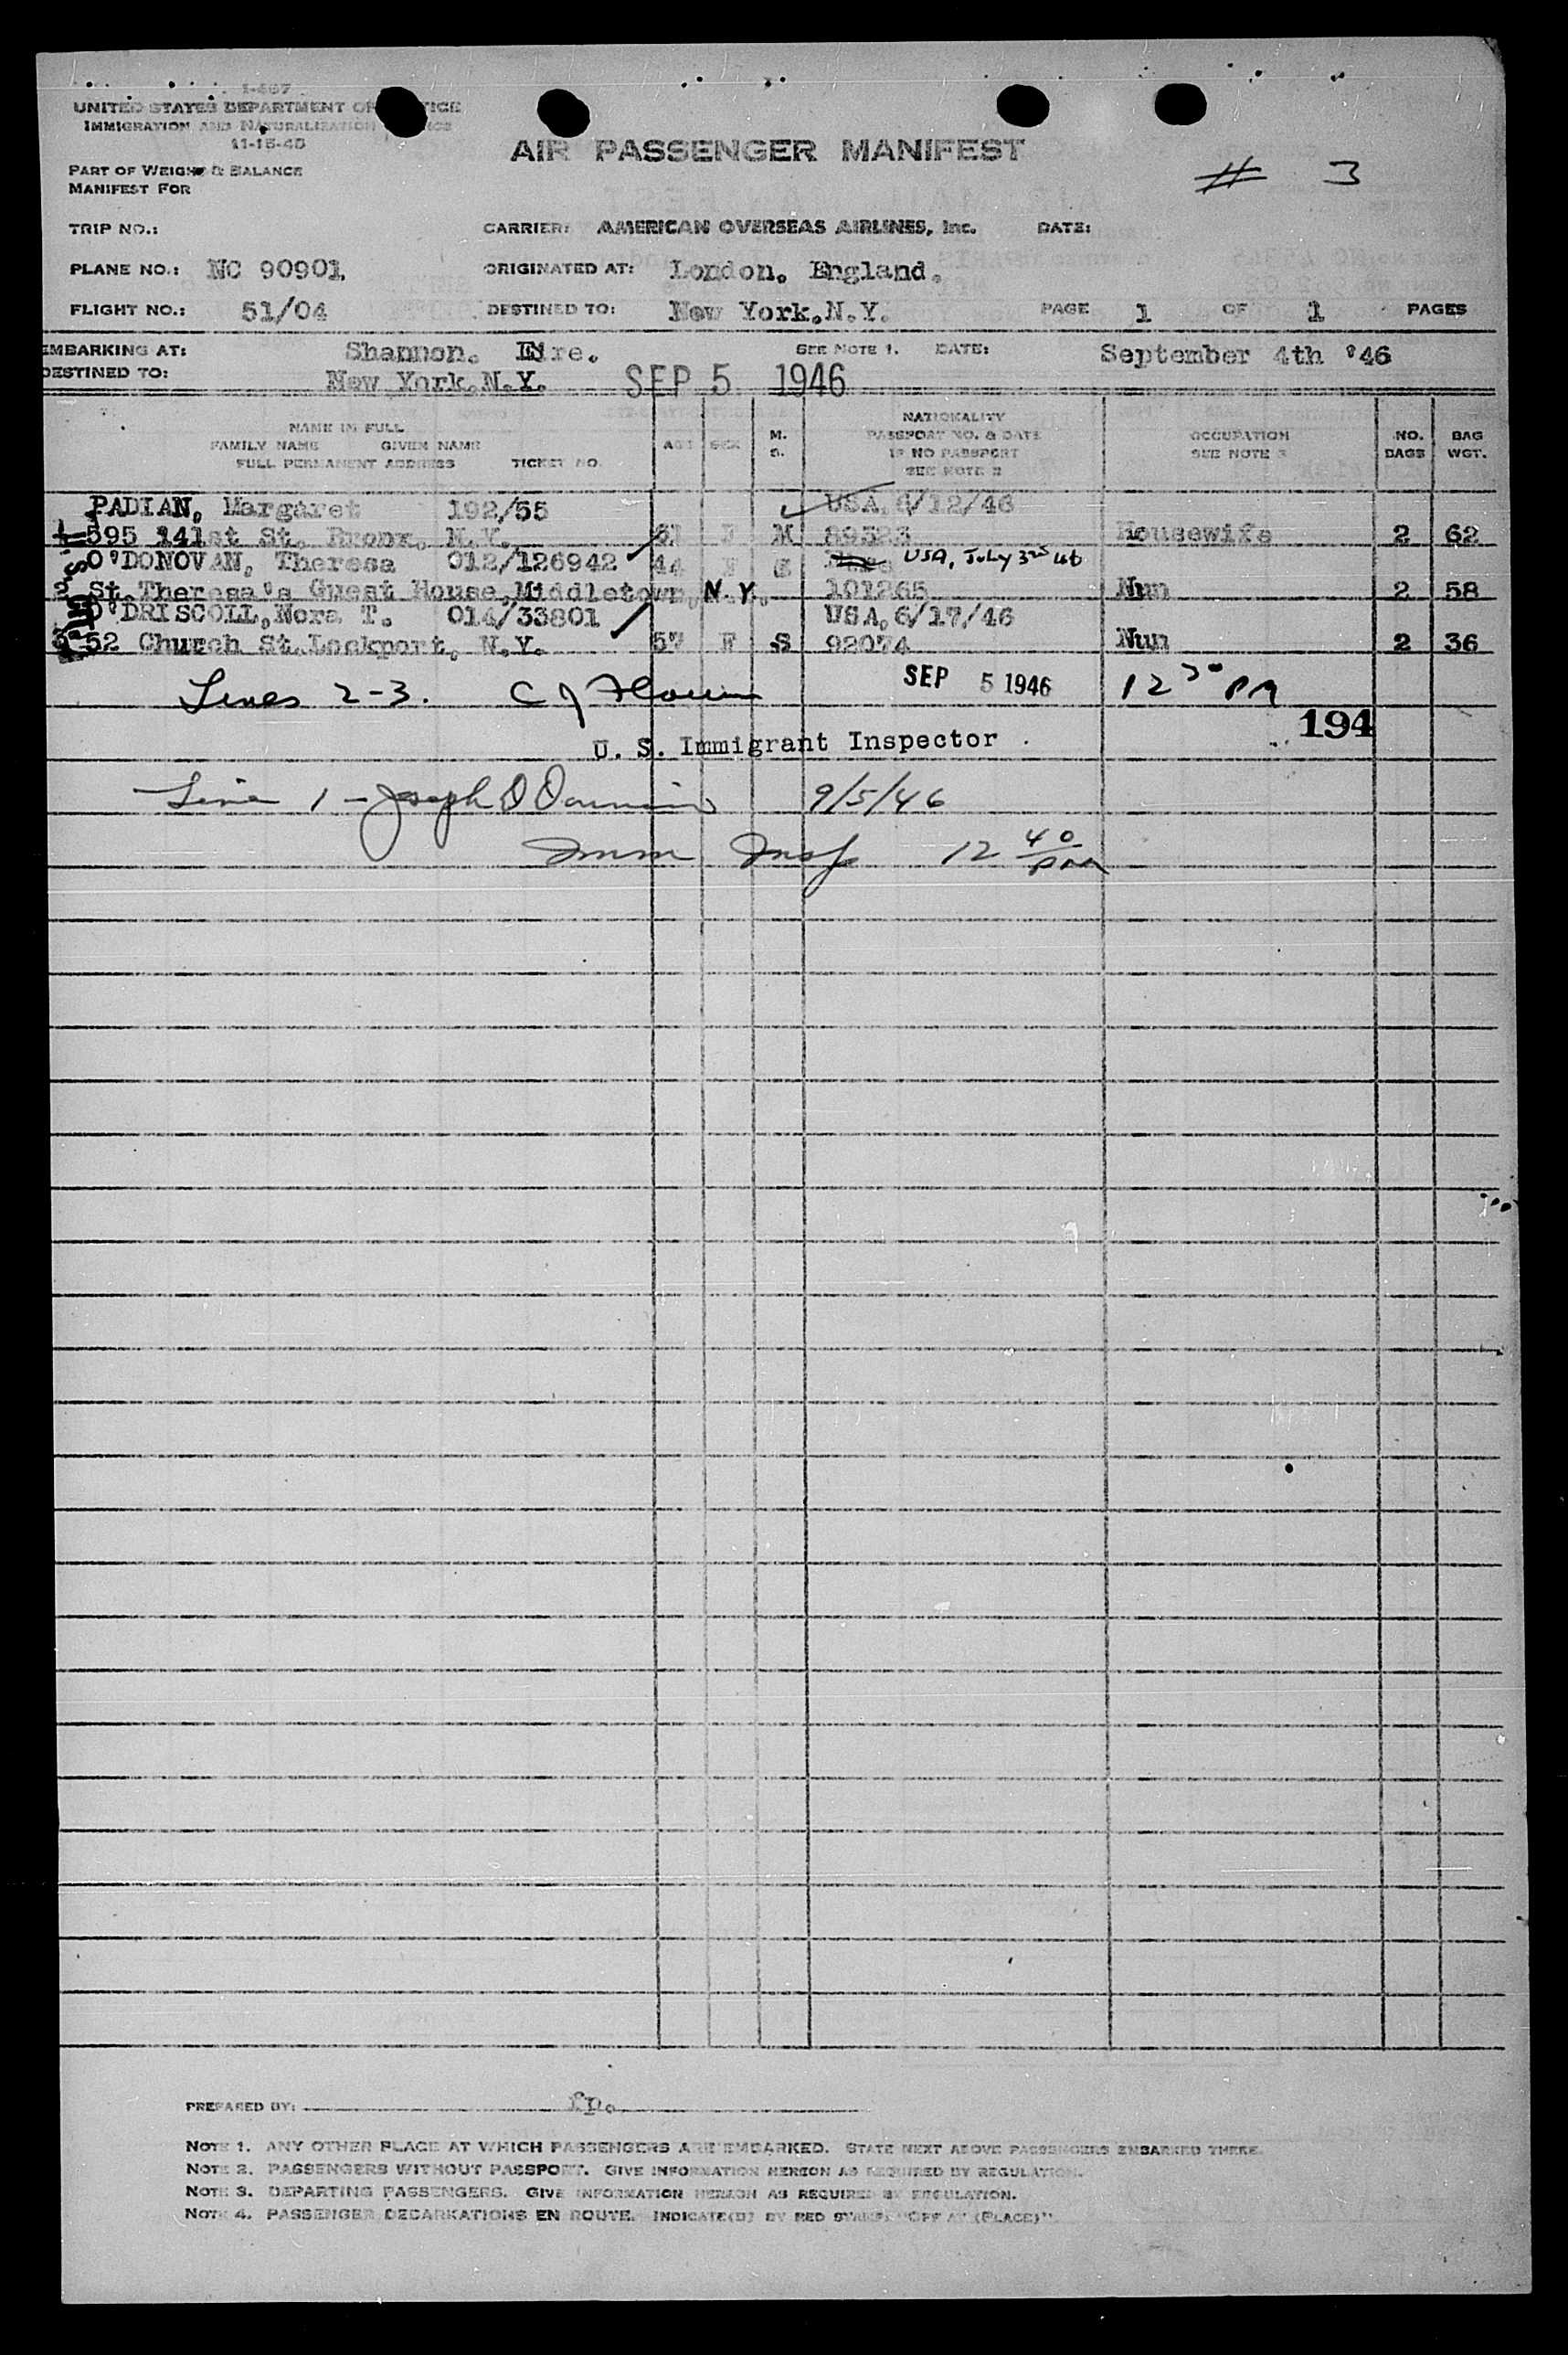 I-467
UNITED STATES DEPARTMENT OF
IMMIGRATION AND NATURALIZATION
11-15-45
AIR PASSENGER MANIFEST
# 3
PART OF WEIGHT & BALANCE
MANIFEST FOR
TRIP NO.: CARRIER: AMERICAN OVERSEAS AIRLINES, Inc. DATE:
PLANE NO.: NC 90901. ORIGINATED AT: London. England.
FLIGHT NO.: 51/04 DESTINED TO: New York.N.Y. PAGE 1 OF 1 PAGES
EMBARKING AT: Shannon. Eire. SEE NOTE 1. DATE: September 4th '46
DESTINED TO: New York.N.Y. SEP 5 1946
NAME IN FULL
FAMILY NAME GIVEN NAME
FULL PERMANENT ADDRESS TICKET NO.
AGE SEX M. S.
NATIONALITY
PASSPORT NO. & DATE
IF NO PASSPORT
SEE NOTE 2
OCCUPATION
SEE NOTE 3
NO. BAGS
BAG WGT.
PADIAN, Margaret 192/55 USA, 6/12/46
1 595 141st St. Bronx. N.Y. F M 89523 Housewife 2 62
O'DONOVAN, Theresa 012/126942 44 F S USA, July 3rd 46
2 St. Theresa's Guest House,Middletown, N.Y. 101265 Nun 2 58
O'DRISCOLL,Nora T. 014/33801 USA,6/17/46
3 52 Church St.Lockport, N.Y. 57 F S 92074 Nun 2 36
Lines 2-3. C J SEP 5 1946 12 30 PM
194
U. S. Immigrant Inspector
Line 1 - Joseph D 9/5/46
Imm Insp 12 40 PM
PREPARED BY:
NOTE 1. ANY OTHER PLACE AT WHICH PASSENGERS ARE EMBARKED. STATE NEXT ABOVE PASSENGERS EMBARKED THERE.
NOTE 2. PASSENGERS WITHOUT PASSPORT. GIVE INFORMATION HEREON AS REQUIRED BY REGULATION.
NOTE 3. DEPARTING PASSENGERS. GIVE INFORMATION HEREON AS REQUIRED BY REGULATION.
NOTE 4. PASSENGER DEBARKATIONS EN ROUTE. INDICATE(D) BY RED STAMP: "OFF AT (PLACE)".